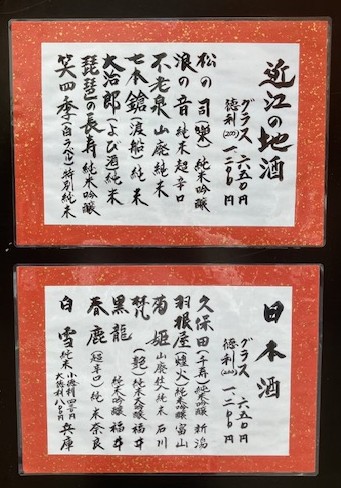 近江の地酒
グラス 六五〇円
徳利(200) 一、二〇〇円
松の司(楽) 純米吟醸
浪の音 純米超辛口
不老泉 山廃純米
七本鎗(渡船) 純米
大治郎(よび酒) 純米
琵琶の長寿 純米吟醸
笑四季(白ラベル) 特別純米
日本酒
グラス 六五〇円
徳利(200) 一、二〇〇円
久保田(千寿) 純米吟醸 新潟
羽根屋(煌火) 純米吟醸 富山
菊姫 山廃仕込純米 石川
梵(艶) 純米大吟醸 福井
黒龍 純米吟醸 福井
春鹿(超辛口) 純米 奈良
白雪 純米 小徳利 四〇〇円 大徳利 八〇〇円 兵庫